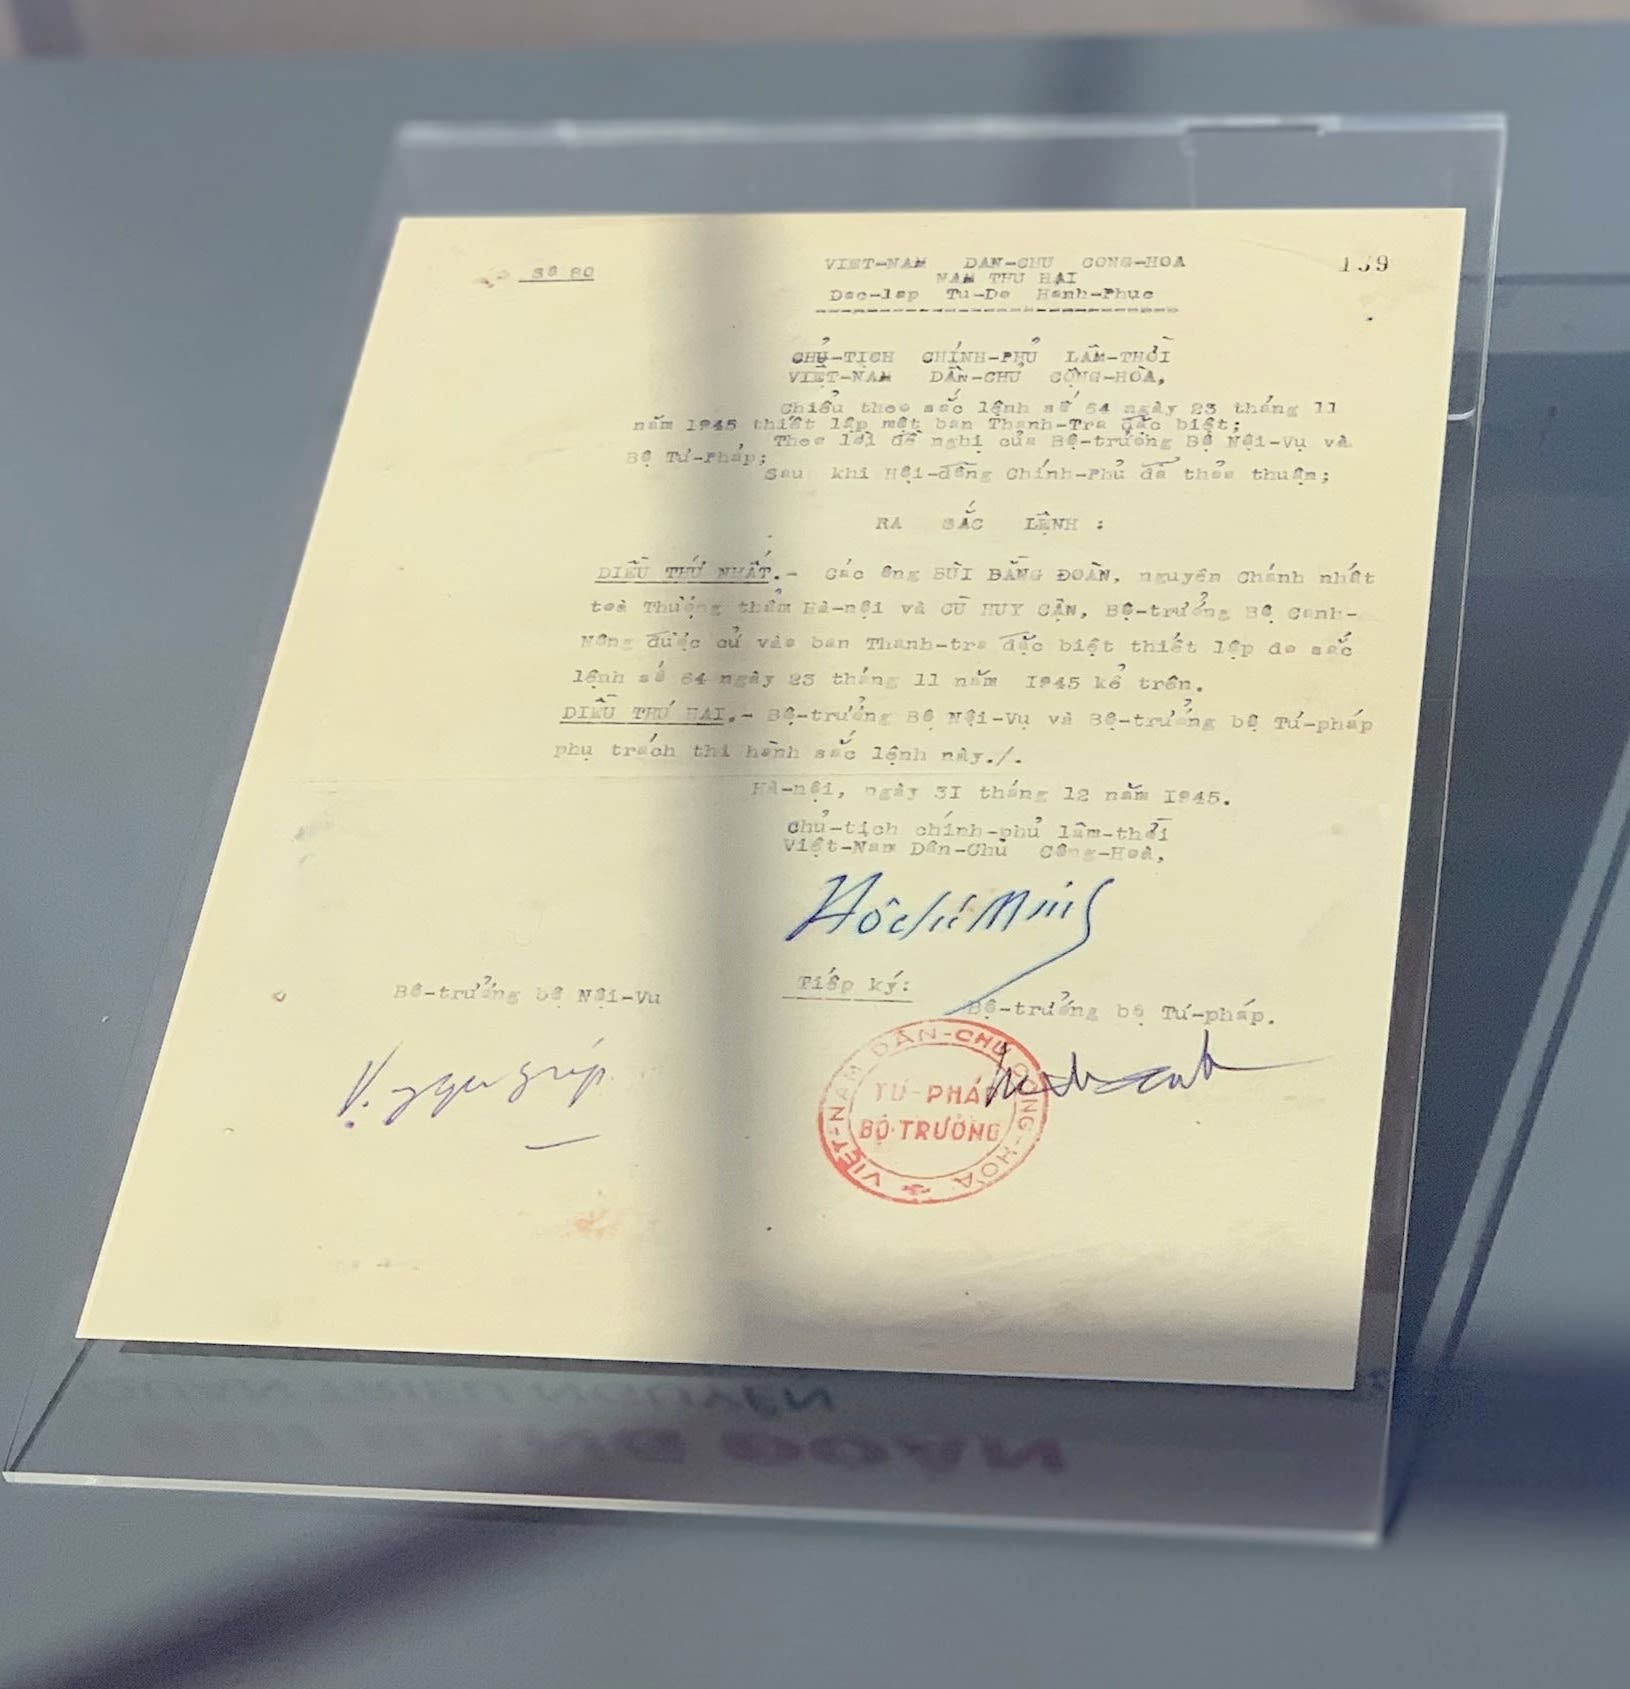 Số 80
VIET-NAM DAN-CHU CONG-HOA
NAM THU HAI
Doc-lap Tu-Do Hanh-Phuc
CHỦ-TỊCH CHÍNH-PHỦ LÂM-THỜI
VIỆT-NAM DÂN-CHỦ CỘNG-HÒA,
Chiểu theo sắc lệnh số 64 ngày 23 tháng 11
năm 1945 thiết lập một ban Thanh-Tra đặc biệt;
Theo lời đề nghị của Bộ-trưởng Bộ Nội-Vụ và
Bộ Tư-Pháp;
Sau khi Hội-đồng Chính-Phủ đã thỏa thuận;
RA SẮC LỆNH :
DIỀU THỨ NHẤT.- Các ông BÙI BẰNG ĐOÀN, nguyên Chánh nhất
toà Thượng thẩm Hà-nội và CÙ HUY CẬN, Bộ-trưởng Bộ Canh-
Nông được cử vào ban Thanh-tra đặc biệt thiết lập do sắc
lệnh số 64 ngày 23 tháng 11 năm 1945 kể trên.
DIỀU THỨ HAI.- Bộ-trưởng Bộ Nội-Vụ và Bộ-trưởng bộ Tư-pháp
phụ trách thi hành sắc lệnh này./.
Hà-nội, ngày 31 tháng 12 năm 1945.
Chủ-tịch chính-phủ lâm-thời
Việt-Nam Dân-Chủ Cộng-Hoà,
Hồ Chí Minh
Tiếp ký:
Bộ-trưởng bộ Nội-Vụ
Bộ-trưởng bộ Tư-pháp.
VIỆT-NAM DÂN-CHỦ CỘNG-HÒA
TƯ-PHÁP
BỘ-TRƯỞNG